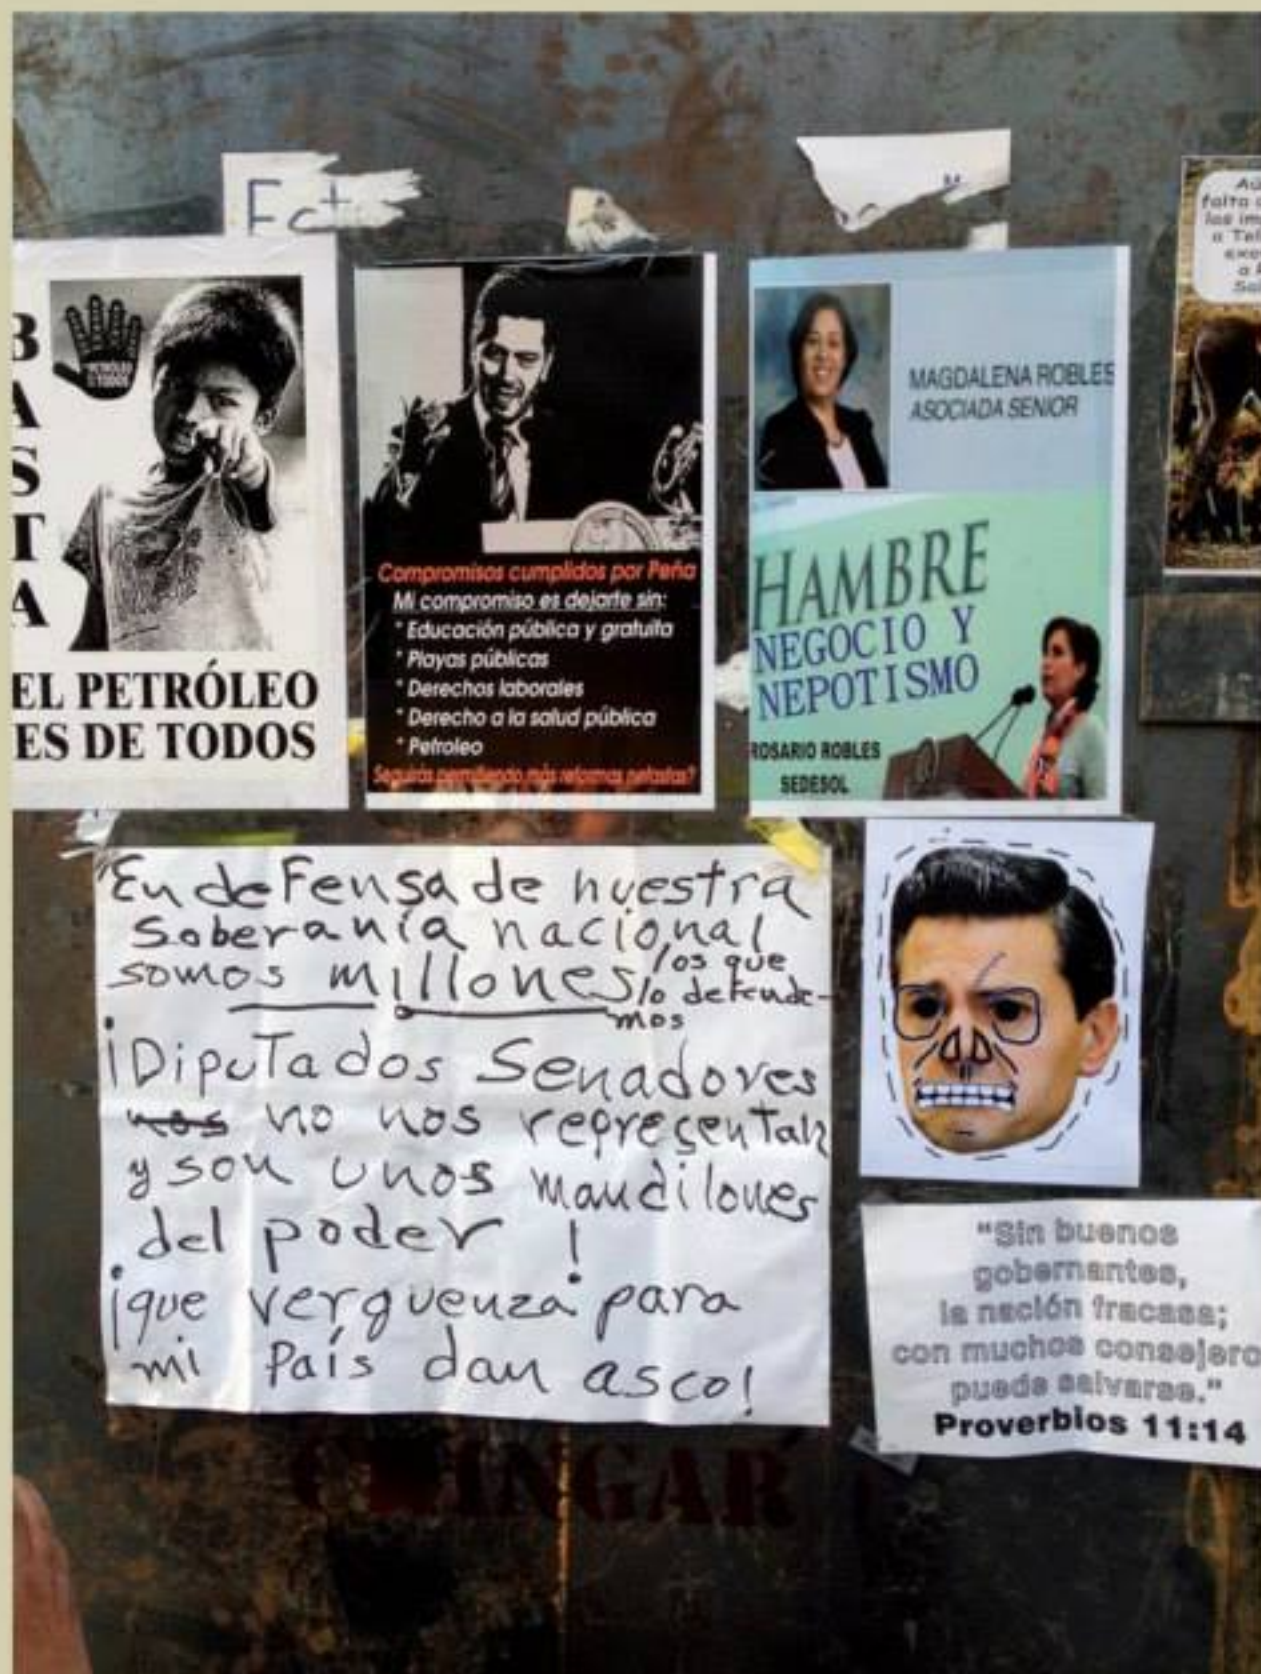 BASTA
PETRÓLEO
TODOS
EL PETRÓLEO
ES DE TODOS
Compromisos cumplidos por Peña
Mi compromiso es dejarte sin:
* Educación pública y gratuita
* Playas públicas
* Derechos laborales
* Derecho a la salud pública
* Petroleo
Seguiras permitiendo más reformas nefastas?
MAGDALENA ROBLES
ASOCIADA SENIOR
HAMBRE
NEGOCIO Y
NEPOTISMO
ROSARIO ROBLES
SEDESOL
falta
a
En defensa de nuestra
soberanía nacional
somos millones los que
lo defende-
mos
¡Diputados Senadores
nos no nos representan
y son unos mandilones
del poder !
¡que verguenza para
mi País dan asco!
"Sin buenos
gobernantes,
la nación fracasa;
con muchos consejero
puede salvarse."
Proverbios 11:14